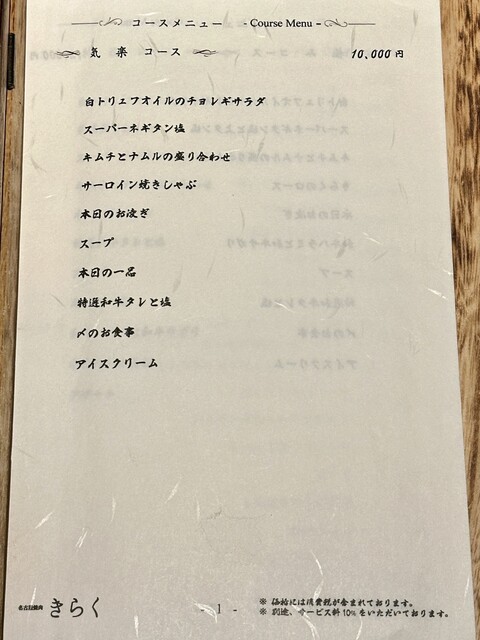 コースメニュー - Course Menu -
気 楽 コース 10,000円
白トリュフオイルのチョレギサラダ
スーパーネギタン塩
キムチとナムルの盛り合わせ
サーロイン焼きしゃぶ
本日のお凌ぎ
スープ
本日の一品
特選和牛タレと塩
〆のお食事
アイスクリーム
名古屋焼肉 きらく
- 1 -
※ 価格には消費税が含まれております。
※ 別途、サービス料10%をいただいております。